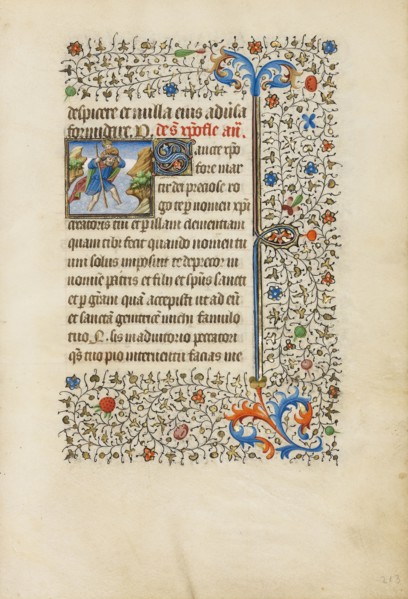 despicere et nulla eius adūsa
formidare. de s̄ xp̄ofle an̄.
Sancte xp̄o
fore mar
tir dei preciose ro
go te per nomen xp̄i
creatoris tui et p illam clementiam
quam tibi fecit quando nomen tu
um solus imposuit te deprecor in
nomīe patris et filii et sp̄us sancti
et p gr̄am quā accepisti ut ad eū
et sanctā genitricem michi famulo
tuo N. sis in adiutorio peccatori
qs̄ tuo pio interventu facias me
213